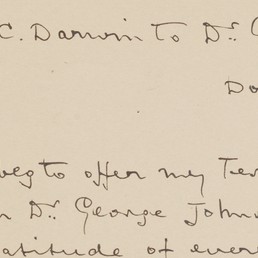 C. Darwin to Dr.
Do
beg to offer my Tes
Dr. George John
atitude of ever